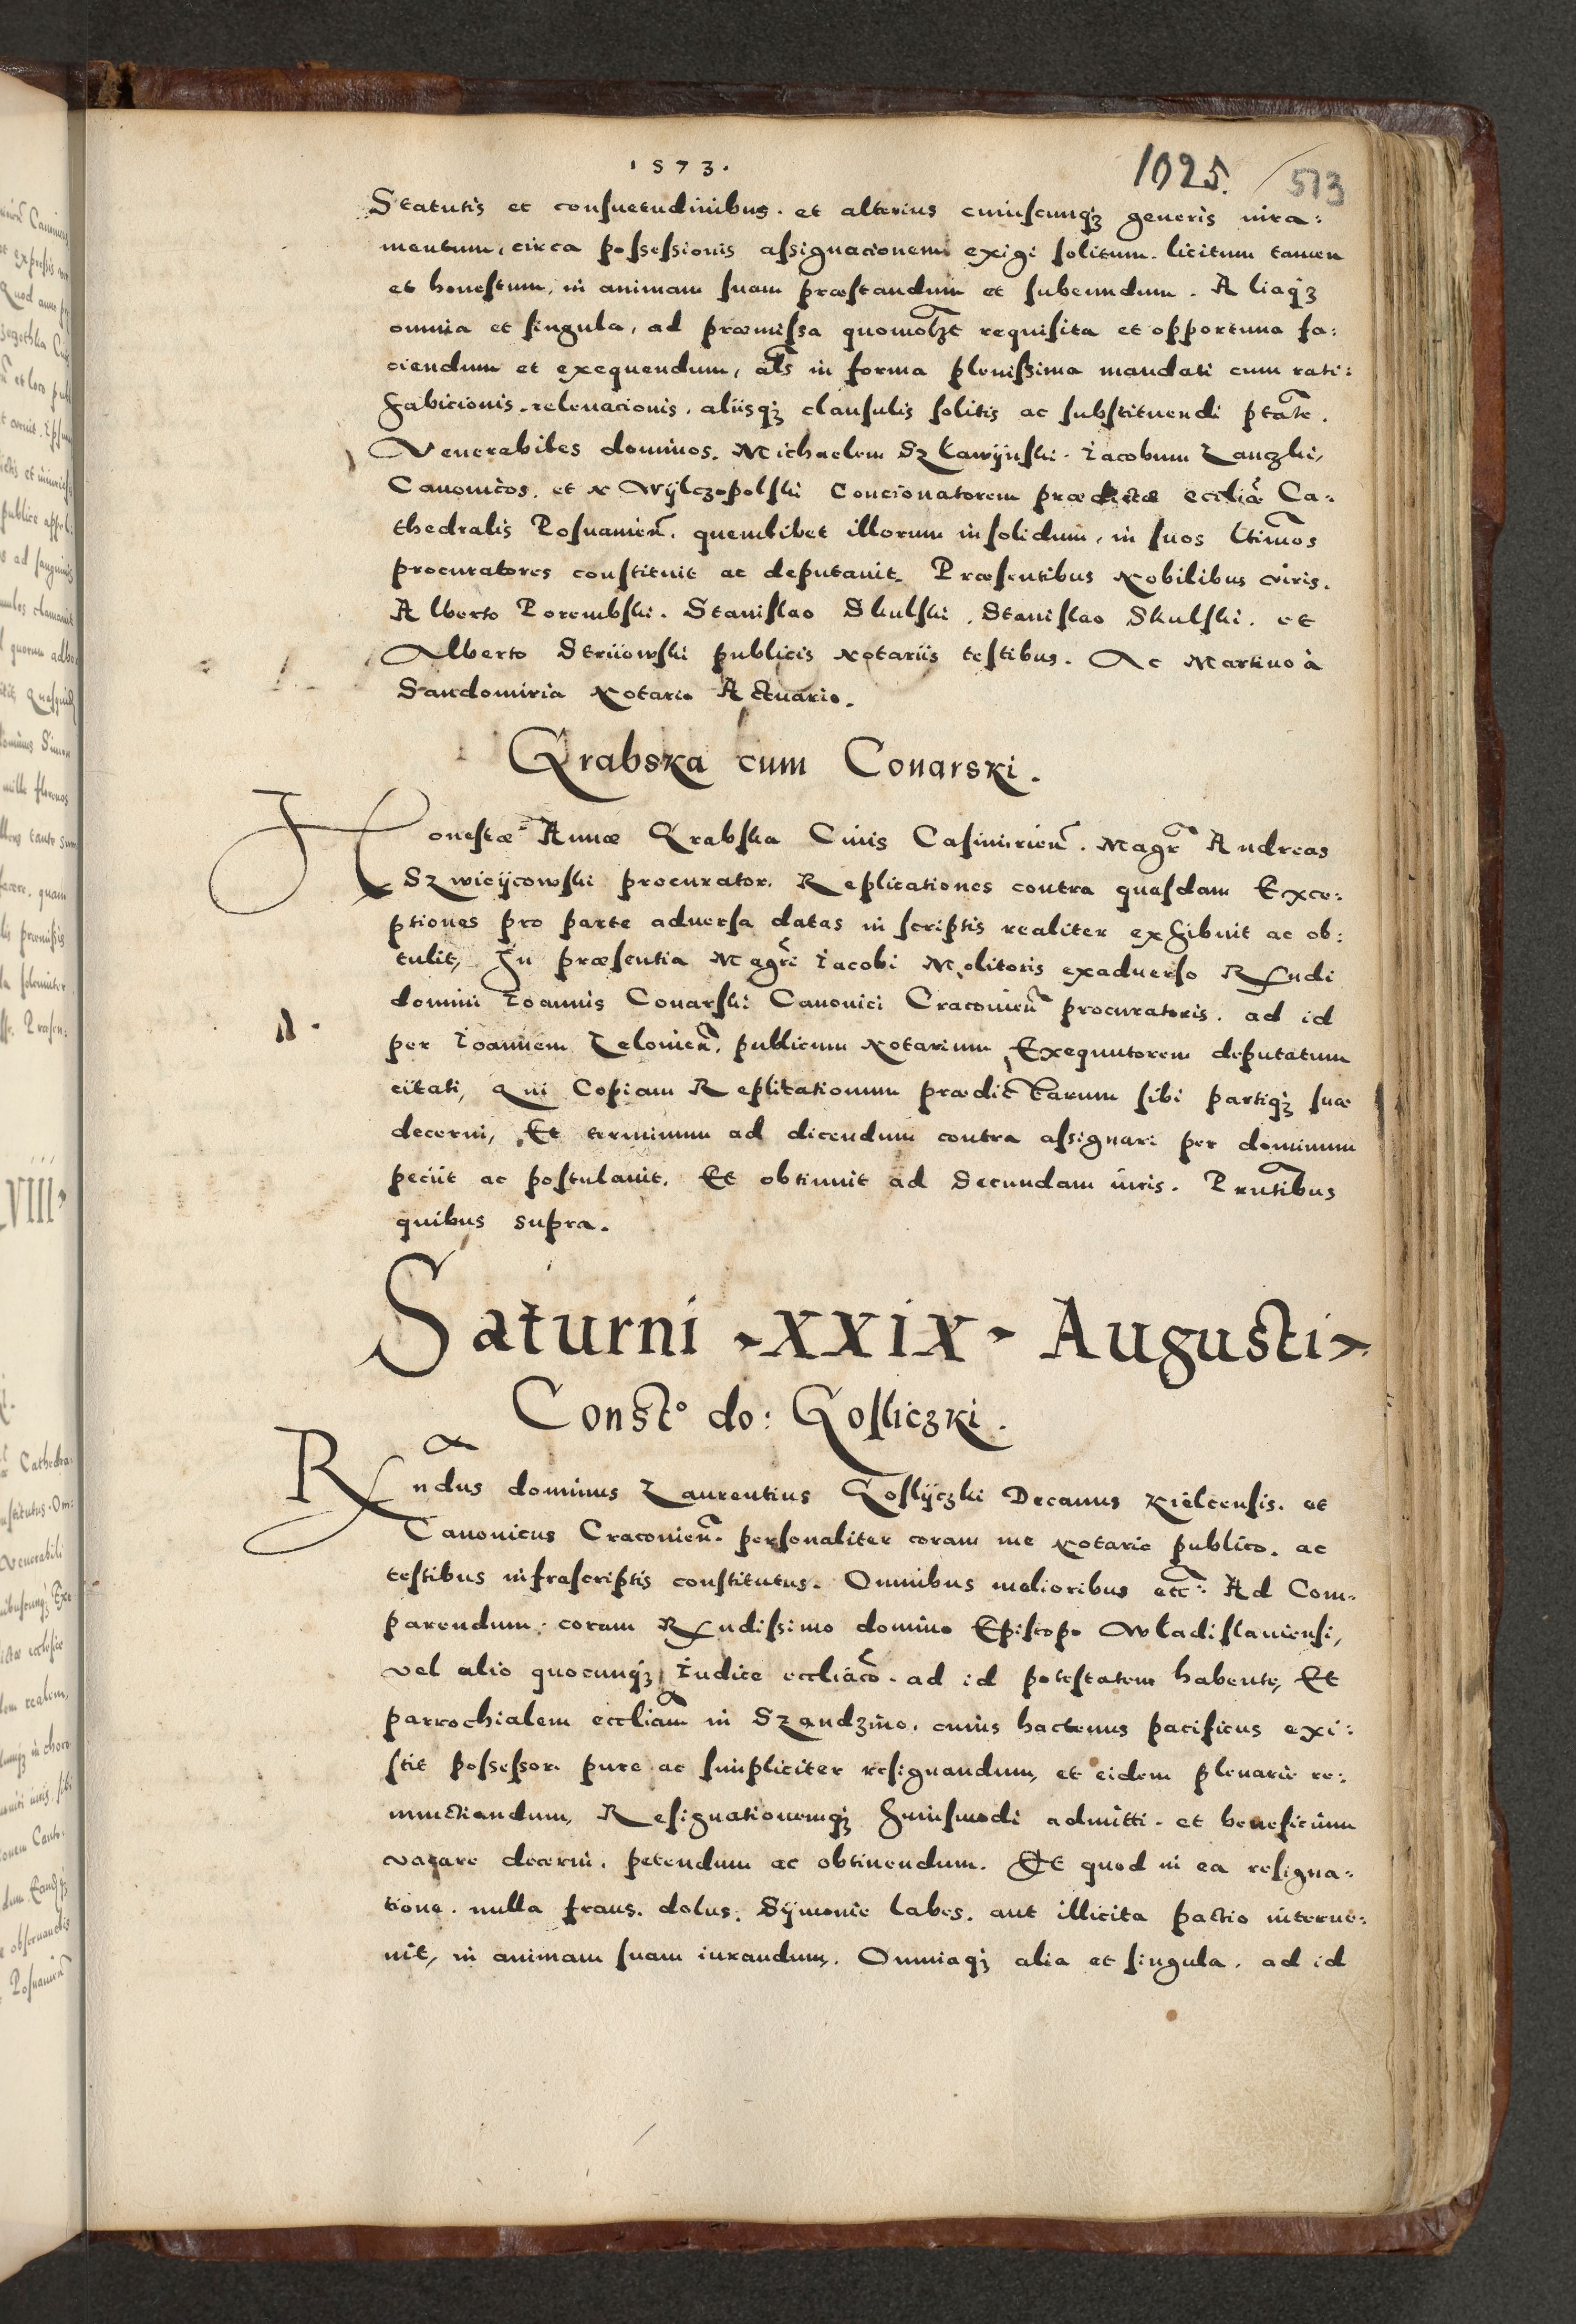 1573.
1025.
573
Statutis et consuetudinibus. et alterius cuiuscunqz generis iura:
mentum, circa possessionis assignacionem exigi solitum. licitum tamen
et honestum, in animam suam præstandum et subeundum. Aliaqz
omnia et singula, ad præmissa quomolzt requisita et opportuna fa:
ciendum et exequendum, als in forma plenissima mandati cum rati:
habicionis. relevacionis. aliisqz clausulis solitis ac substituendi ptate.
Venerabiles dominos. Michaelem Szkawÿnski. Iacobum Lanczki,
Canonicos. et N Wÿlczopolski Concionatorem prædictæ eccliæ Ca:
thedralis Posnanien. quemlibet illorum insolidum, in suos ltimos
procuratores constituit ac deputavit. Præsentibus Nobilibus viris.
Alberto Porembski. Stanislao Skulski. Stanislao Skulski. et
Alberto Striiowski publicis Notariis testibus. Ac Martino à
Sandomiria Notario Actuario.
Grabska cum Conarski.
Honestæ Annæ Grabska Civis Casimirien. Magr Andreas
Szwieÿcowski procurator. Replicationes contra quasdam Exce:
ptiones pro parte adversa datas in scriptis realiter exhibuit ac ob:
tulit, In præsentia Magri Iacobi Molitoris exadverso Rndi
domini Ioannis Conarski Canonici Cracovien procuratoris. ad id
per Ioannem Zelonien. publicum Notarium Exequutorem deputatum
citati, Qui Copiam Replicationum prædictarum sibi partiqz suæ
decerni, Et terminum ad dicendum contra assignari per dominum
peciit ac postulavit. Et obtinuit ad Secundam iuris. Prntibus
quibus supra.
Saturni XXIX Augusti
Const° do: Gosliczki.
Rndus dominus Laurentius Goslÿczki Decanus Kielcensis. et
Canonicus Cracovien. personaliter coram me Notario publico. ac
testibus infrascriptis constitutus. Omnibus melioribus etc: Ad Com:
parendum. coram Rndissimo domino Episcopo Wladislaviensi,
vel alio quocunqz Iudice eccliaco. ad id potestatem habente, Et
parrochialem eccliam in Szandzino. cuius hactenus pacificus exi:
stit possessor. pure ac simpliciter resignandum, et eidem plenarie re:
nunctiandum, Resignationemqz huiusmodi admitti. et beneficium
vacare decerni. petendum ac obtinendum. Et quod in ea resigna:
tione. nulla fraus. dolus. Sÿmonie labes. aut illicita pactio interve:
nit, in animam suam iurandum. Omniaqz alia et singula. ad id